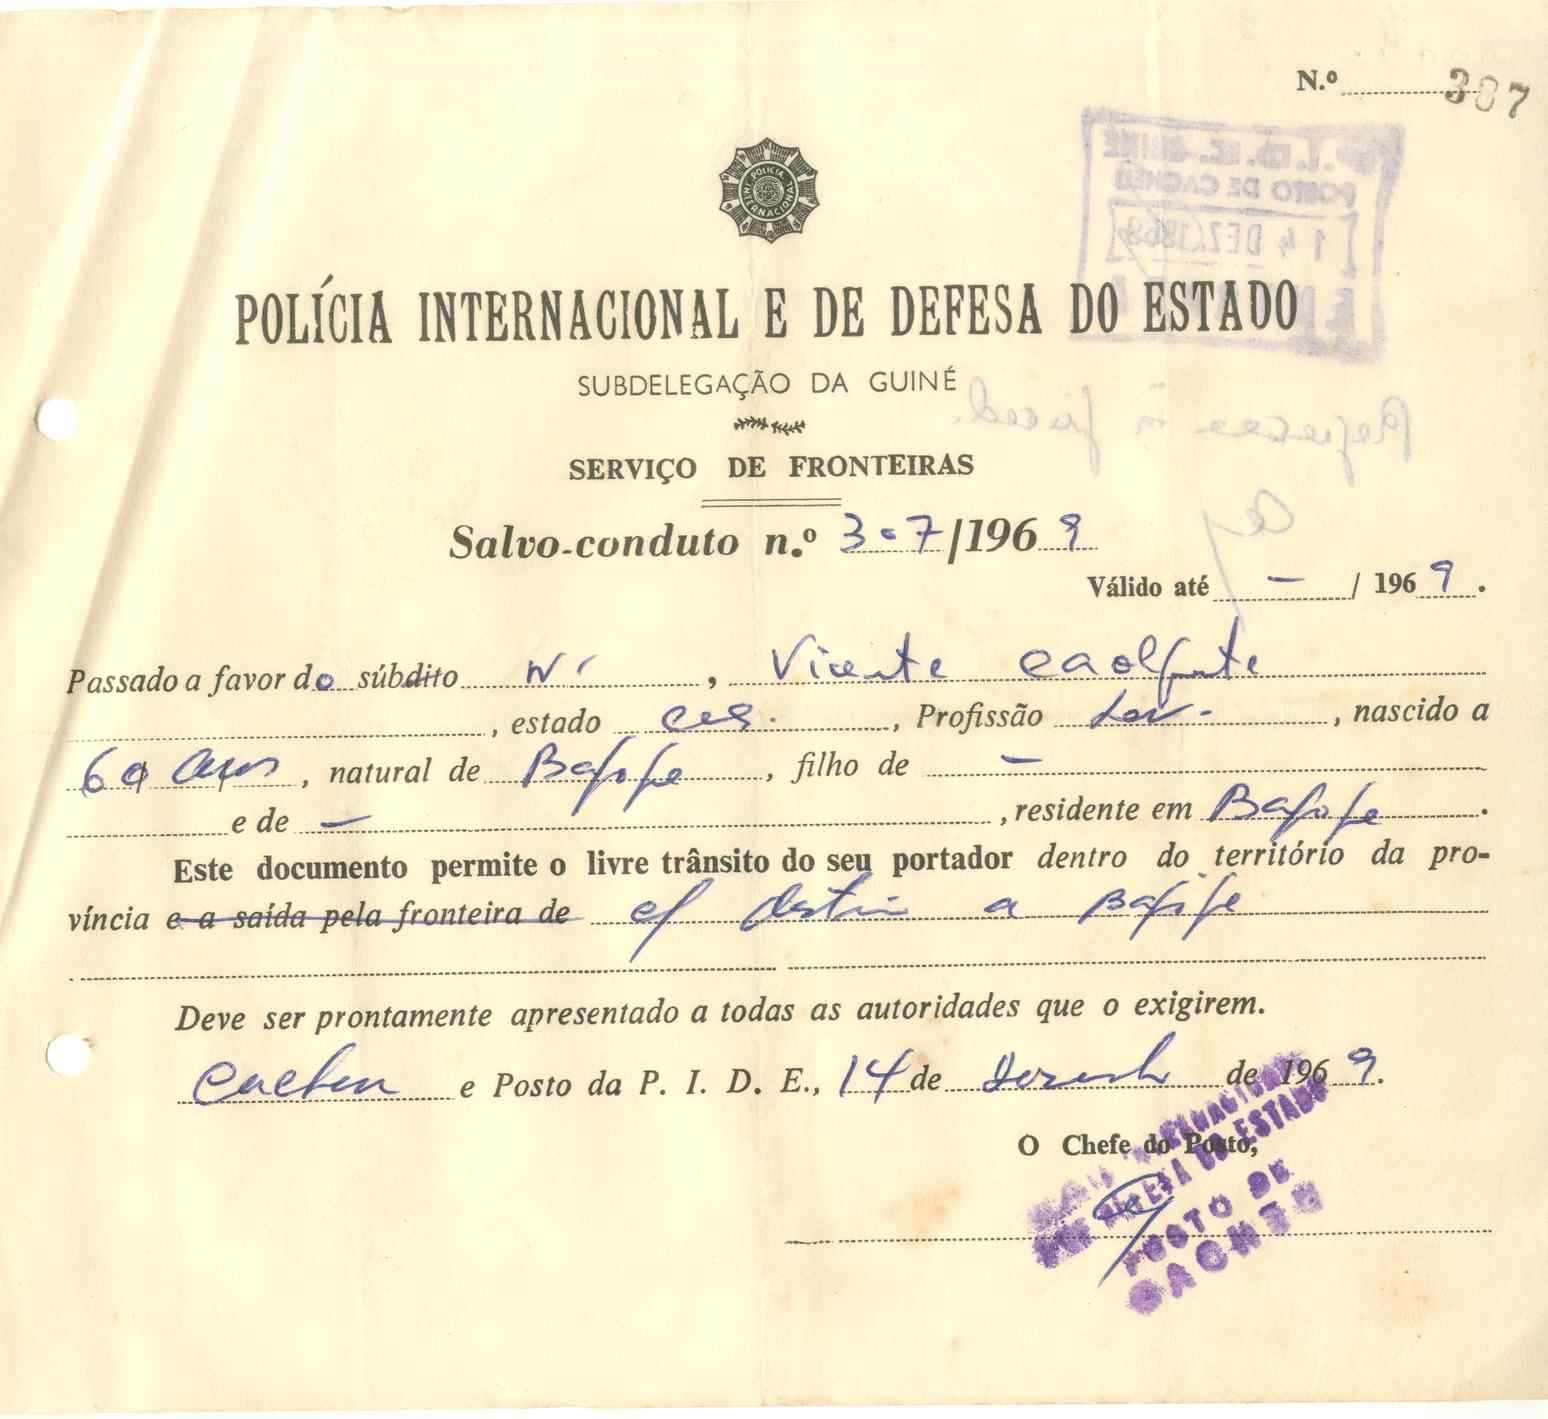 N.º 307
POLICIA INTERNACIONAL
POLÍCIA INTERNACIONAL E DE DEFESA DO ESTADO
SUBDELEGAÇÃO DA GUINÉ
SERVIÇO DE FRONTEIRAS
Salvo-conduto n.º 307/1969
Válido até - / 1969.
Passado a favor do súbdito , Vicente
, estado , Profissão Lav. , nascido a
60 anos, natural de , filho de -
e de - , residente em .
Este documento permite o livre trânsito do seu portador dentro do território da pro-
víncia e a saída pela fronteira de c/ destino a
Deve ser prontamente apresentado a todas as autoridades que o exigirem.
Cacheu e Posto da P. I. D. E., 14 de Dezembro de 1969.
O Chefe do Posto,
INTERNACIONAL
DE DEFESA DO ESTADO
POSTO DE
CACHEU
P.I.D.E. GUINÉ
POSTO DE CACHEU
14 DEZ 1969